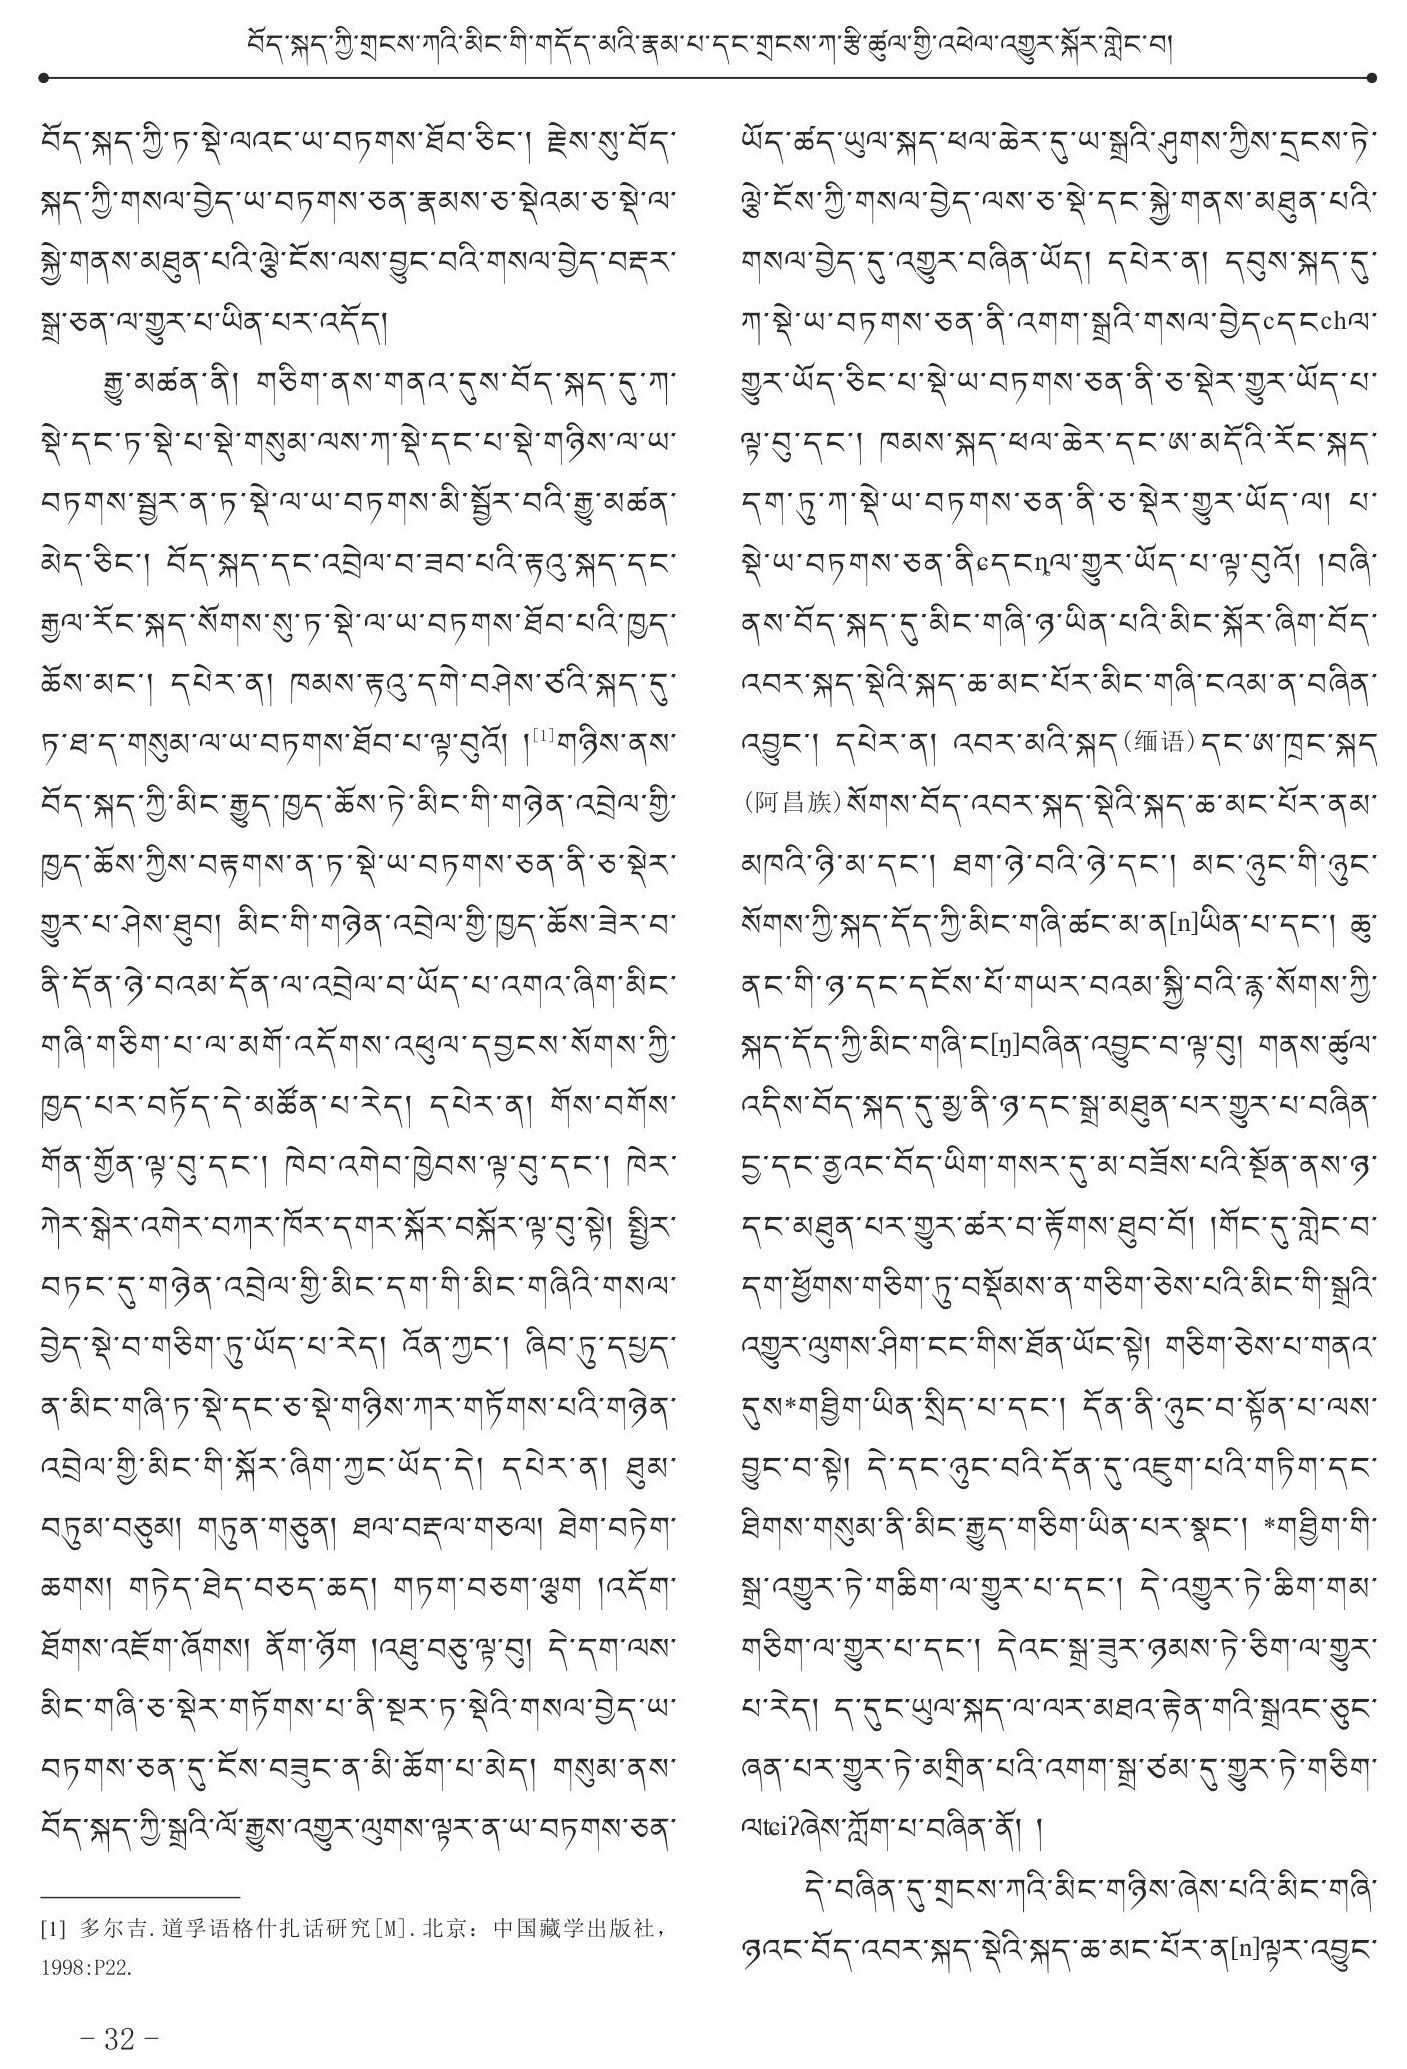 བོད་སྐད་ཀྱི་གྲངས་ཀའི་མིང་གི་གདོད་མའི་རྣམ་པ་དང་གྲངས་ཀ་རྩི་ཚུལ་གྱི་འཕེལ་འགྱུར་སྐོར་གླེང་བ།
བོད་སྐད་ཀྱི་ཏ་སྡེ་ལའང་ཡ་བཏགས་ཐོབ་ཅིང་། རྗེས་སུ་བོད་
སྐད་ཀྱི་གསལ་བྱེད་ཡ་བཏགས་ཅན་རྣམས་ཅ་སྡེའམ་ཅ་སྡེ་ལ་
སྐྱེ་གནས་མཐུན་པའི་ལྕེ་ངོས་ལས་བྱུང་བའི་གསལ་བྱེད་བརྡར་
སྒྲ་ཅན་ལ་གྱུར་པ་ཡིན་པར་འདོད།
རྒྱུ་མཚན་ནི། གཅིག་ནས་གནའ་དུས་བོད་སྐད་དུ་ཀ་
སྡེ་དང་ཏ་སྡེ་པ་སྡེ་གསུམ་ལས་ཀ་སྡེ་དང་པ་སྡེ་གཉིས་ལ་ཡ་
བཏགས་སྦྱར་ན་ཏ་སྡེ་ལ་ཡ་བཏགས་མི་སྦྱོར་བའི་རྒྱུ་མཚན་
མེད་ཅིང་། བོད་སྐད་དང་འབྲེལ་བ་ཟབ་པའི་རྟའུ་སྐད་དང་
རྒྱལ་རོང་སྐད་སོགས་སུ་ཏ་སྡེ་ལ་ཡ་བཏགས་ཐོབ་པའི་ཁྱད་
ཆོས་མང་། དཔེར་ན། ཁམས་རྟའུ་དགེ་བཤེས་ཙའི་སྐད་དུ་
ཏ་ཐ་ད་གསུམ་ལ་ཡ་བཏགས་ཐོབ་པ་ལྟ་བུའོ། །[1]གཉིས་ནས་
བོད་སྐད་ཀྱི་མིང་རྒྱུད་ཁྱད་ཆོས་ཏེ་མིང་གི་གཉེན་འབྲེལ་གྱི་
ཁྱད་ཆོས་ཀྱིས་བརྟགས་ན་ཏ་སྡེ་ཡ་བཏགས་ཅན་ནི་ཅ་སྡེར་
གྱུར་པ་ཤེས་ཐུབ། མིང་གི་གཉེན་འབྲེལ་གྱི་ཁྱད་ཆོས་ཟེར་བ་
ནི་དོན་ཉེ་བའམ་དོན་ལ་འབྲེལ་བ་ཡོད་པ་འགའ་ཞིག་མིང་
གཞི་གཅིག་པ་ལ་མགོ་འདོགས་འཕུལ་དབྱངས་སོགས་ཀྱི་
ཁྱད་པར་བཏོད་དེ་མཚོན་པ་རེད། དཔེར་ན། གོས་བགོས་
གོན་གྱོན་ལྟ་བུ་དང་། ཁེབ་འགེབ་ཁྱེབས་ལྟ་བུ་དང་། ཁེར་
ཀེར་སྒེར་འགེར་བཀར་ཁོར་དགར་སྐོར་བསྐོར་ལྟ་བུ་སྟེ། སྤྱིར་
བཏང་དུ་གཉེན་འབྲེལ་གྱི་མིང་དག་གི་མིང་གཞིའི་གསལ་
བྱེད་སྡེ་བ་གཅིག་ཏུ་ཡོད་པ་རེད། འོན་ཀྱང་། ཞིབ་ཏུ་དཔྱད་
ན་མིང་གཞི་ཏ་སྡེ་དང་ཅ་སྡེ་གཉིས་ཀར་གཏོགས་པའི་གཉེན་
འབྲེལ་གྱི་མིང་གི་སྐོར་ཞིག་ཀྱང་ཡོད་དེ། དཔེར་ན། ཐུམ་
བཏུམ་བཅུམ། གཏུན་གཅུན། ཐལ་བརྡལ་གཅལ། ཐེག་བཏེག་
ཆགས། གཏེད་ཐེད་བཅད་ཆད། གཏག་བཅག་ལྕག །འདོག་
ཐོགས་འཇོག་ཞོགས། ནོག་ཉོག །འཐུ་བཅུ་ལྟ་བུ། དེ་དག་ལས་
མིང་གཞི་ཅ་སྡེར་གཏོགས་པ་ནི་སྔར་ཏ་སྡེའི་གསལ་བྱེད་ཡ་
བཏགས་ཅན་དུ་ངོས་བཟུང་ན་མི་ཆོག་པ་མེད། གསུམ་ནས་
བོད་སྐད་ཀྱི་སྒྲའི་ལོ་རྒྱུས་འགྱུར་ལུགས་ལྟར་ན་ཡ་བཏགས་ཅན་
[1] 多尔吉.道孚语格什扎话研究[M].北京：中国藏学出版社，
1998:P22.
ཡོད་ཚད་ཡུལ་སྐད་ཕལ་ཆེར་དུ་ཡ་སྒྲའི་ཤུགས་ཀྱིས་དྲངས་ཏེ་
ལྕེ་ངོས་ཀྱི་གསལ་བྱེད་ལས་ཅ་སྡེ་དང་སྐྱེ་གནས་མཐུན་པའི་
གསལ་བྱེད་དུ་འགྱུར་བཞིན་ཡོད། དཔེར་ན། དབུས་སྐད་དུ་
ཀ་སྡེ་ཡ་བཏགས་ཅན་ནི་འགག་སྒྲའི་གསལ་བྱེདcདངchལ་
གྱུར་ཡོད་ཅིང་པ་སྡེ་ཡ་བཏགས་ཅན་ནི་ཅ་སྡེར་གྱུར་ཡོད་པ་
ལྟ་བུ་དང་། ཁམས་སྐད་ཕལ་ཆེར་དང་ཨ་མདོའི་རོང་སྐད་
དག་ཏུ་ཀ་སྡེ་ཡ་བཏགས་ཅན་ནི་ཅ་སྡེར་གྱུར་ཡོད་ལ། པ་
སྡེ་ཡ་བཏགས་ཅན་ནིɕདངȵལ་གྱུར་ཡོད་པ་ལྟ་བུའོ། །བཞི་
ནས་བོད་སྐད་དུ་མིང་གཞི་ཉ་ཡིན་པའི་མིང་སྐོར་ཞིག་བོད་
འབར་སྐད་སྡེའི་སྐད་ཆ་མང་པོར་མིང་གཞི་ངའམ་ན་བཞིན་
འབྱུང་། དཔེར་ན། འབར་མའི་སྐད(缅语)དང་ཨ་ཁྲང་སྐད
(阿昌族)སོགས་བོད་འབར་སྐད་སྡེའི་སྐད་ཆ་མང་པོར་ནམ་
མཁའི་ཉི་མ་དང་། ཐག་ཉེ་བའི་ཉེ་དང་། མང་ཉུང་གི་ཉུང་
སོགས་ཀྱི་སྐད་དོད་ཀྱི་མིང་གཞི་ཚང་མ་ན[n]ཡིན་པ་དང་། ཆུ་
ནང་གི་ཉ་དང་དངོས་པོ་གཡར་བའམ་སྐྱི་བའི་རྙ་སོགས་ཀྱི་
སྐད་དོད་ཀྱི་མིང་གཞི་ང[ŋ]བཞིན་འབྱུང་བ་ལྟ་བུ། གནས་ཚུལ་
འདིས་བོད་སྐད་དུ་མྱ་ནི་ཉ་དང་སྒྲ་མཐུན་པར་གྱུར་པ་བཞིན་
ངྱ་དང་ནྱའང་བོད་ཡིག་གསར་དུ་མ་བཟོས་པའི་སྔོན་ནས་ཉ་
དང་མཐུན་པར་གྱུར་ཚར་བ་རྟོགས་ཐུབ་བོ། །གོང་དུ་གླེང་བ་
དག་ཕྱོགས་གཅིག་ཏུ་བསྡོམས་ན་གཅིག་ཅེས་པའི་མིང་གི་སྒྲའི་
འགྱུར་ལུགས་ཤིག་ངང་གིས་ཐོན་ཡོང་སྟེ། གཅིག་ཅེས་པ་གནའ་
དུས*གཐྱིག་ཡིན་སྲིད་པ་དང་། དོན་ནི་ཉུང་བ་སྟོན་པ་ལས་
བྱུང་བ་སྟེ། དེ་དང་ཉུང་བའི་དོན་དུ་འཇུག་པའི་གཏིག་དང་
ཐིགས་གསུམ་ནི་མིང་རྒྱུད་གཅིག་ཡིན་པར་སྣང་། *གཐྱིག་གི་
སྒྲ་འགྱུར་ཏེ་གཆིག་ལ་གྱུར་པ་དང་། དེ་འགྱུར་ཏེ་ཆིག་གམ་
གཅིག་ལ་གྱུར་པ་དང་། དེའང་སྒྲ་ཟུར་ཉམས་ཏེ་ཅིག་ལ་གྱུར་
པ་རེད། ད་དུང་ཡུལ་སྐད་ལ་ལར་མཐའ་རྟེན་གའི་སྒྲའང་ཅུང་
ཞན་པར་གྱུར་ཏེ་མགྲིན་པའི་འགག་སྒྲ་ཙམ་དུ་གྱུར་ཏེ་གཅིག་
ལʨiʔཞེས་ཀློག་པ་བཞིན་ནོ། །
དེ་བཞིན་དུ་གྲངས་ཀའི་མིང་གཉིས་ཞེས་པའི་མིང་གཞི་
ཉའང་བོད་འབར་སྐད་སྡེའི་སྐད་ཆ་མང་པོར་ན[n]ལྟར་འབྱུང་
– 32 –